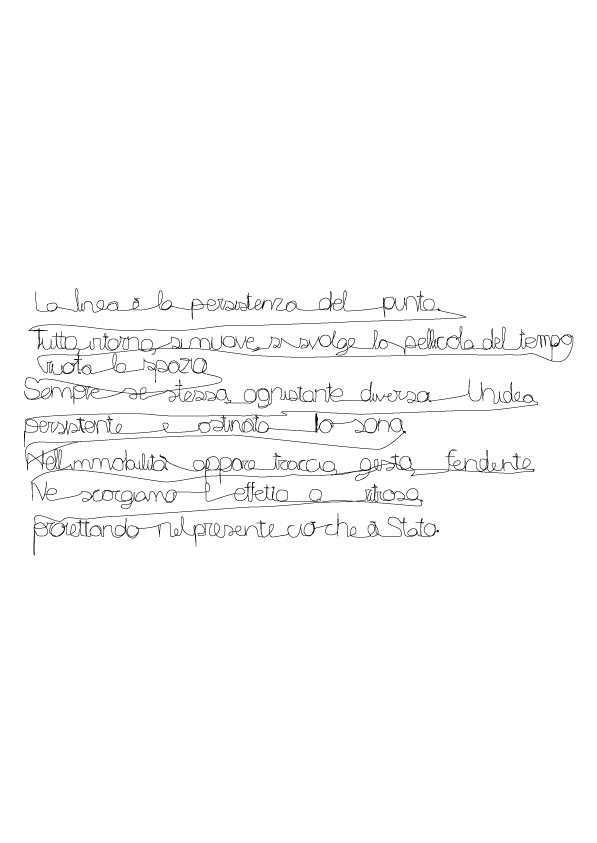 La linea è la persistenza del punto.
Tutto intorno, si muove, si svolge la pellicola del tempo
ruota lo spazio
Sempre se stessa, ogni istante diversa. Un'idea
persistente e ostinata io sono.
Nell'immobilità appare traccia, gesto, fendente.
Ne scorgiamo l'effetto a ritroso,
proiettando nel presente ciò che è Stato.